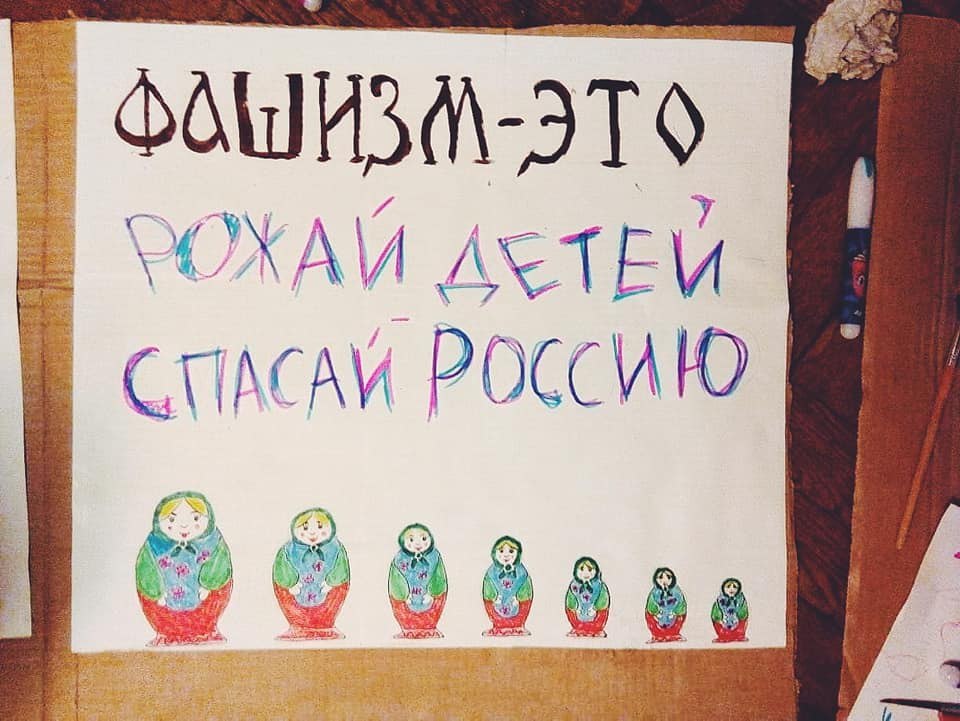 ФАШИЗМ-ЭТО
РОЖАЙ ДЕТЕЙ
СПАСАЙ РОССИЮ